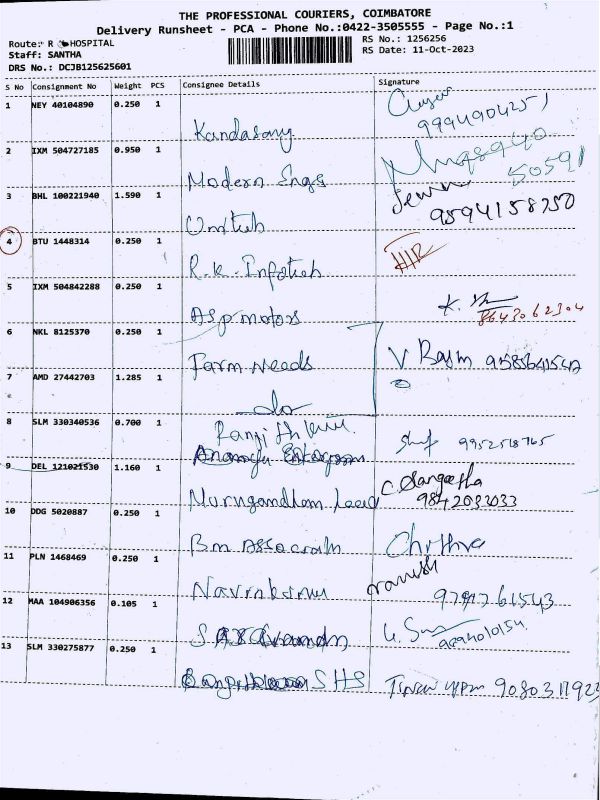 THE PROFESSIONAL COURIERS, COIMBATORE
Delivery Runsheet - PCA - Phone No.:0422-3505555 - Page No.:1
Route: R HOSPITAL
RS No.: 1256256
Staff: SANTHA
RS Date: 11-Oct-2023
DRS No.: DCJB125625601
S No Consignment No Weight PCS Consignee Details Signature
1 NEY 40104890 0.250 1
Kandasamy 9994904251
2 IXM 504727185 0.950 1
Modern Engs 50591
3 BHL 100221940 1.590 1
Unitech 9594158250
4 BTU 1448314 0.250 1
R.K. Infotech
5 IXM 504842288 0.250 1
Asp motors K. 8643062304
6 NKL 8125370 0.250 1
Farm Needs V 9585641542
7 AMD 27442703 1.285 1
do
8 SLM 330340536 0.700 1
Ranjith kumar 9952518765
9 DEL 121021530 1.160 1
C. Sangeetha
Murugandham 9842092033
10 DDG 5020887 0.250 1
Bm Associats Chithra
11 PLN 1468469 0.250 1
9791761543
12 MAA 104906356 0.105 1
13 SLM 330275877 0.250 1
SHS 9080311923